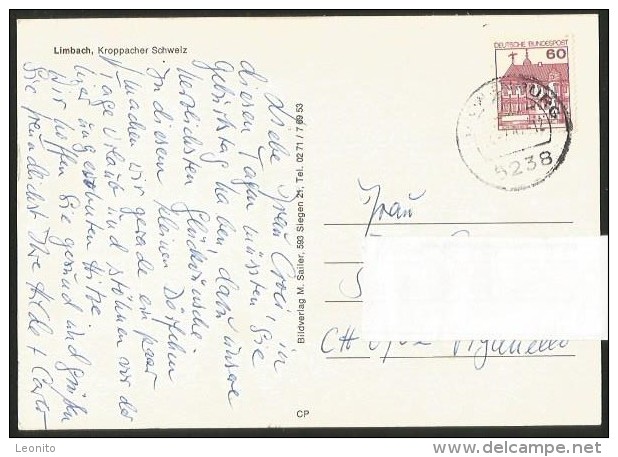 Limbach, Kroppacher Schweiz
Liebe Frau Croci, in
diesen Tagen müssten Sie
Geburtstag haben, dazu unsere
herzlichsten Glückwünsche.
In diesem kleinen Dörfchen
machen wir gerade ein paar
Tage Urlaub und stöhnen vor der
hier ungewohnten Hitze.
Wir hoffen Sie gesund und grüßen
Sie freundlichst Ihre Hilde +
Bildverlag M. Sailer, 593 Siegen 21, Tel. 02 71 / 7 69 53
CP
DEUTSCHE BUNDESPOST
60
5238
Frau
CH
www.delcampe.net
Leonito